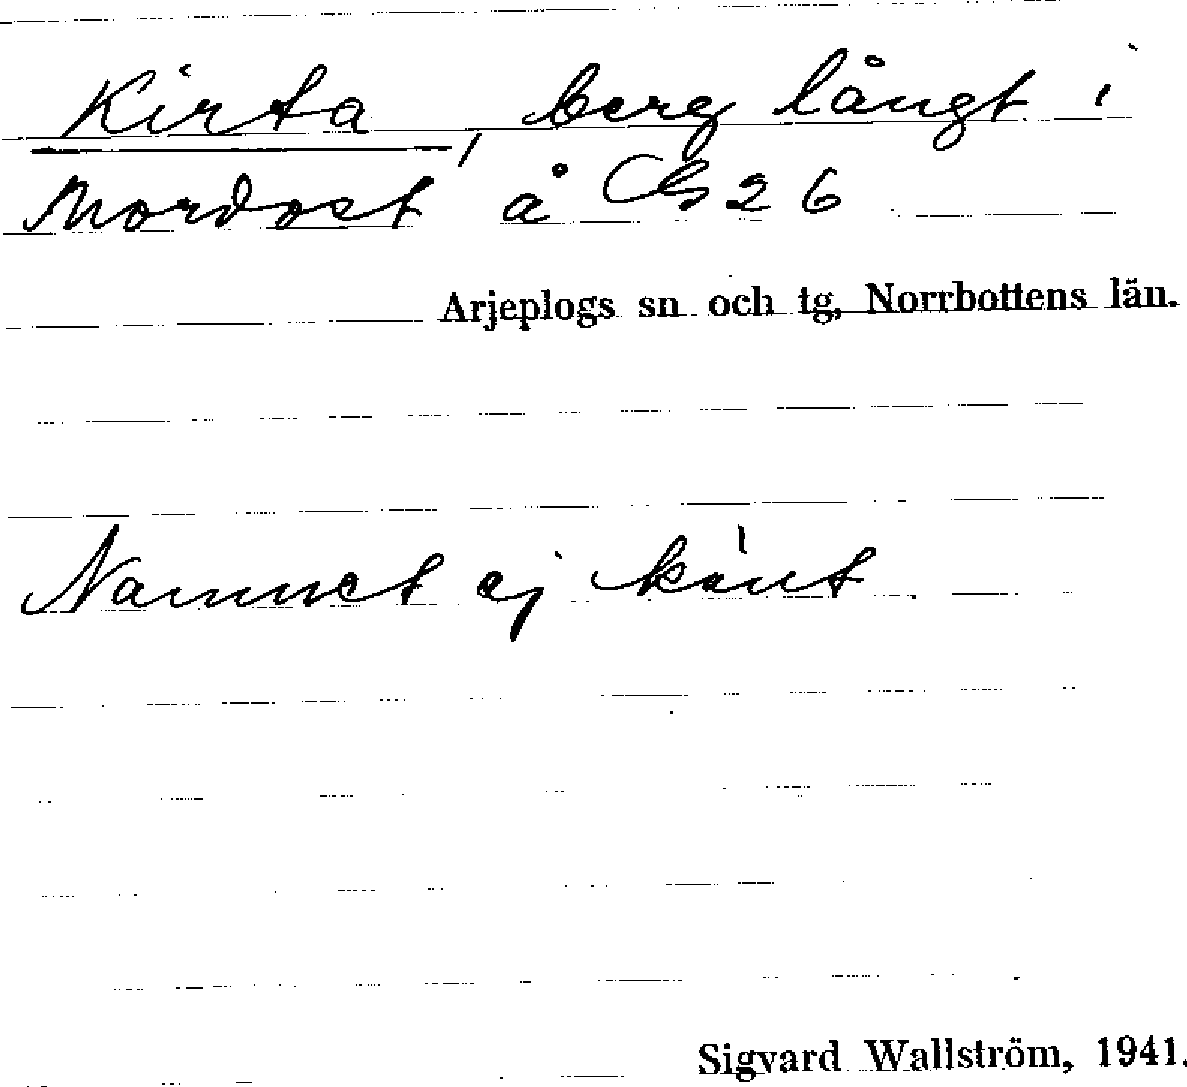 Kirta, berg långt i
Nordost å Gb 26
Arjeplogs sn och tg, Norrbottens län.
Namnet ej känt.
Sigvard Wallström, 1941.